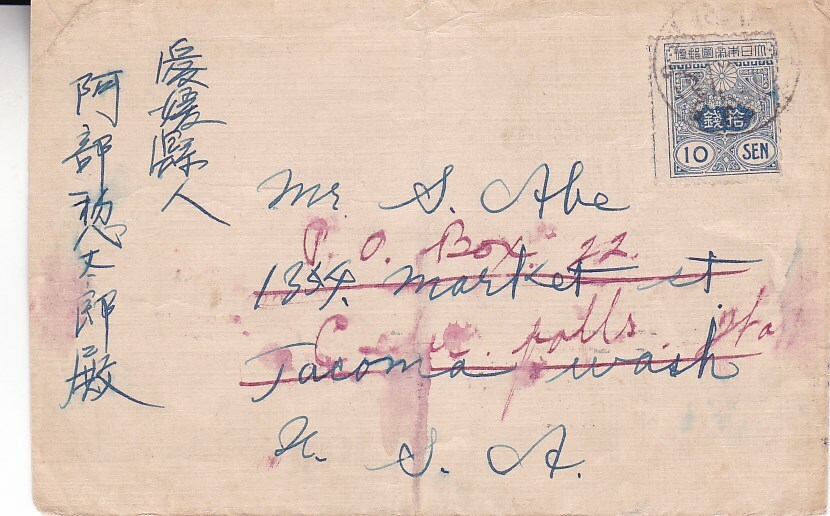 愛媛縣人
阿部惣太郎殿
大日本帝國郵便
拾錢
10 SEN
Mr. S. Abe
P. O. Box. 22.
1354. Market st
falls.
Tacoma wash
U. S. A.